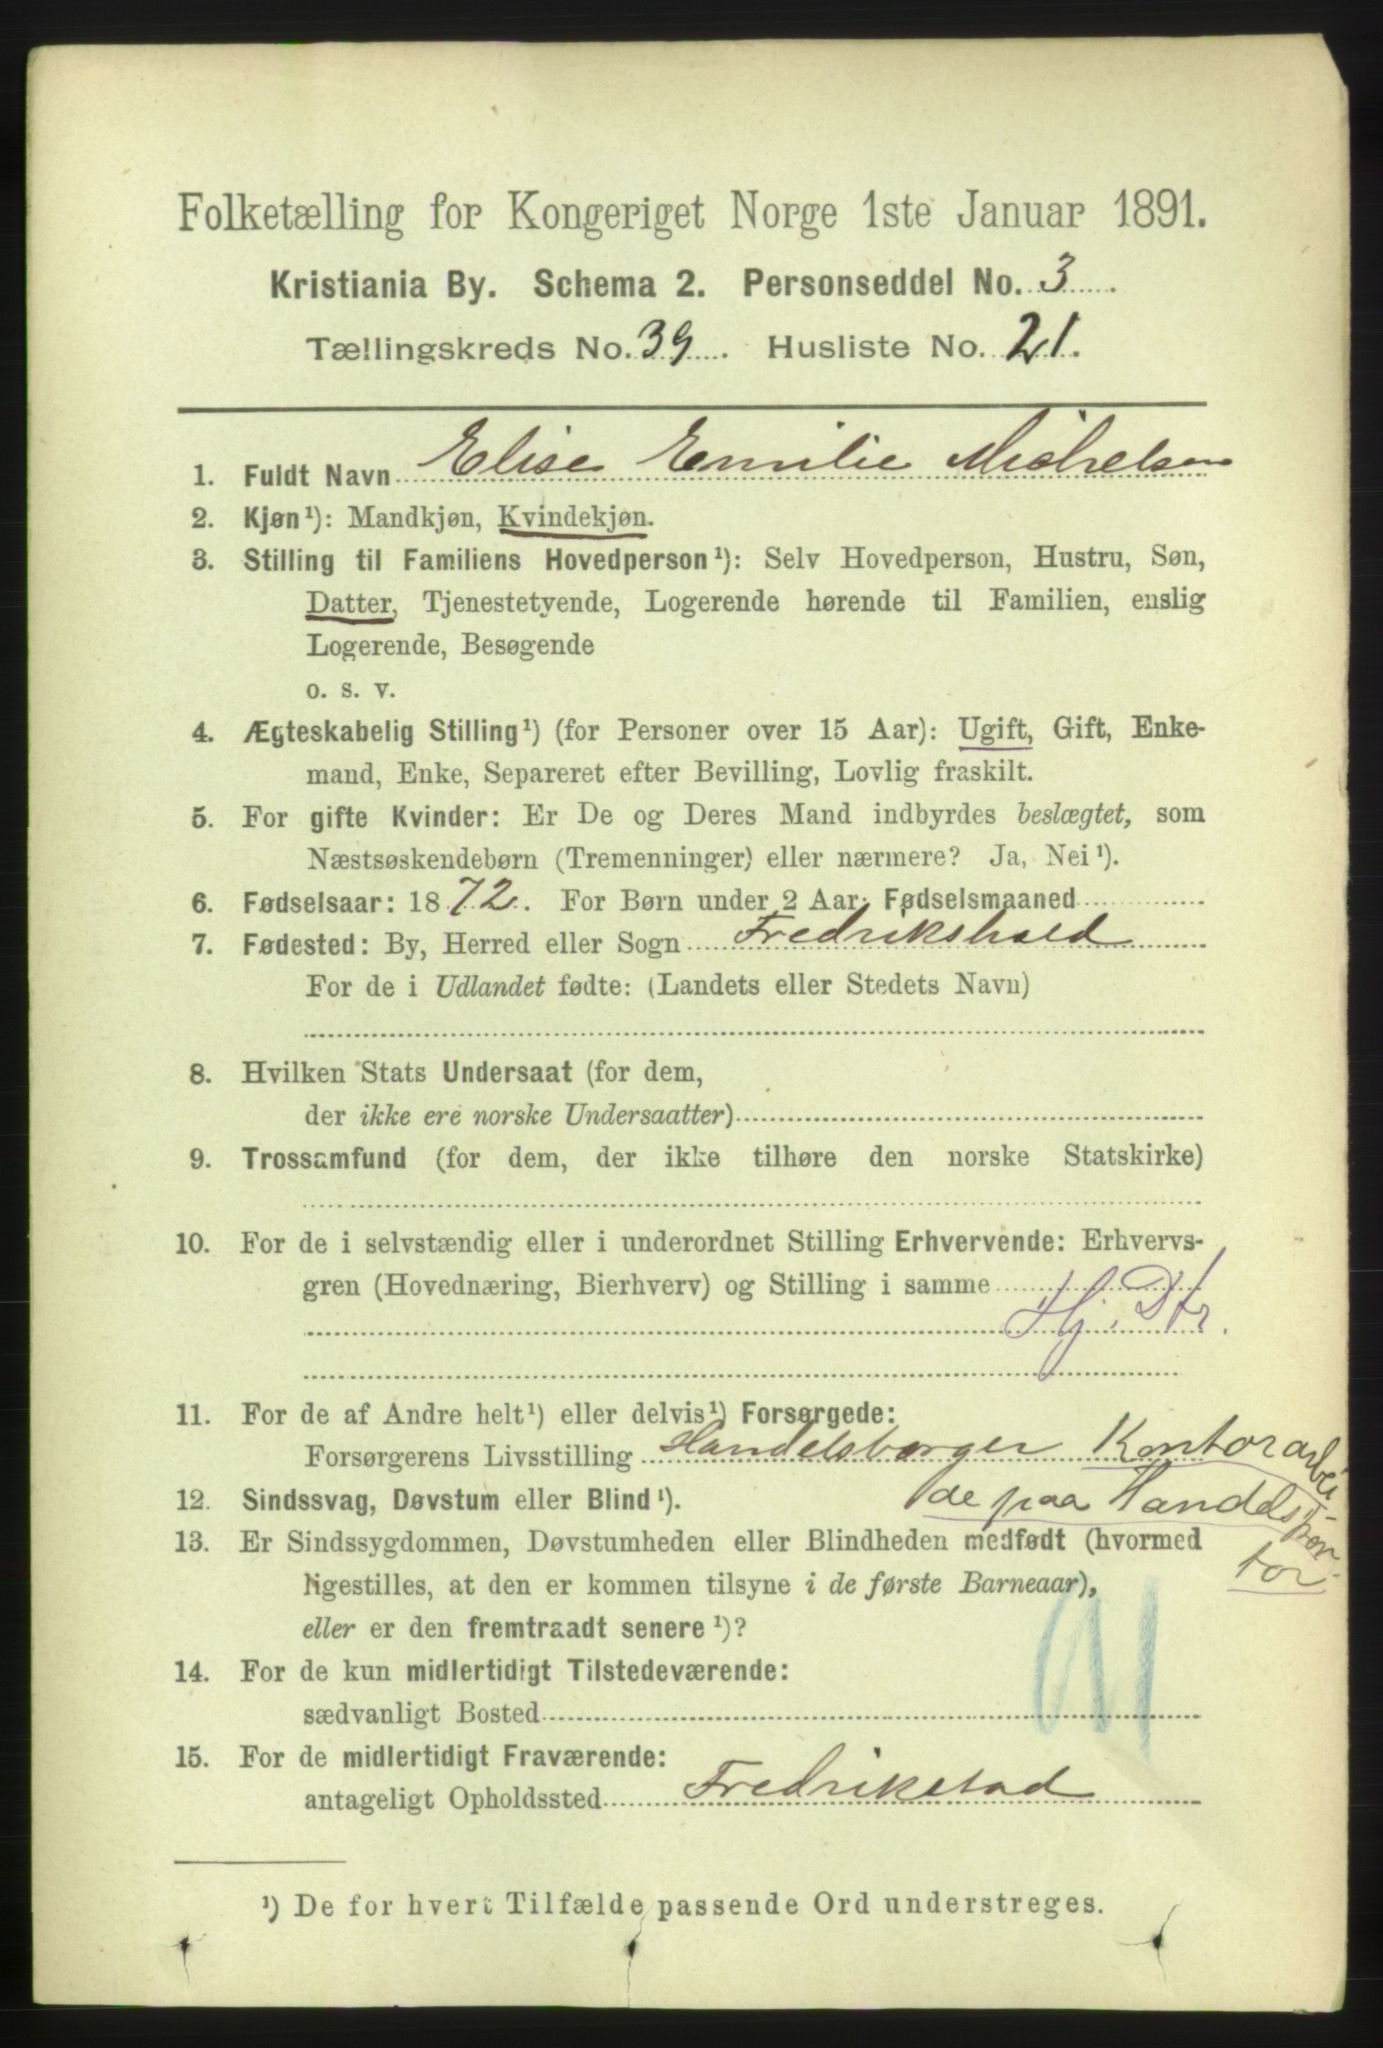 Folketælling for Kongeriget Norge 1ste Januar 1891.
Kristiania By. Schema 2. Personseddel No. 3.
Tællingskreds No. 39. Husliste No. 21.
1. Fuldt Navn Elise Emilie Michelsen
2. Kjøn¹): Mandkjøn, Kvindekjøn.
3. Stilling til Familiens Hovedperson¹): Selv Hovedperson, Hustru, Søn,
Datter, Tjenestetyende, Logerende hørende til Familien, enslig
Logerende, Besøgende
o. s. v.
4. Ægteskabelig Stilling¹) (for Personer over 15 Aar): Ugift, Gift, Enke-
mand, Enke, Separeret efter Bevilling, Lovlig fraskilt.
5. For gifte Kvinder: Er De og Deres Mand indbyrdes beslægtet, som
Næstsøskendebørn (Tremenninger) eller nærmere? Ja, Nei¹).
6. Fødselsaar: 1872. For Børn under 2 Aar: Fødselsmaaned
7. Fødested: By, Herred eller Sogn Fredrikshald
For de i Udlandet fødte: (Landets eller Stedets Navn)
8. Hvilken Stats Undersaat (for dem,
der ikke ere norske Undersaatter)
9. Trossamfund (for dem, der ikke tilhøre den norske Statskirke)
10. For de i selvstændig eller i underordnet Stilling Erhvervende: Erhvervs-
gren (Hovednæring, Bierhverv) og Stilling i samme
Hj. Dtr.
11. For de af Andre helt¹) eller delvis¹) Forsørgede:
Forsørgerens Livsstilling Handelsborger Kontorarbei-
12. Sindssvag, Døvstum eller Blind¹). de paa Handelskon-
13. Er Sindssygdommen, Døvstumheden eller Blindheden medfødt (hvormed tor.
ligestilles, at den er kommen tilsyne i de første Barneaar),
eller er den fremtraadt senere¹)?
91
14. For de kun midlertidigt Tilstedeværende:
sædvanligt Bosted
15. For de midlertidigt Fraværende:
antageligt Opholdssted Fredrikstad
¹) De for hvert Tilfælde passende Ord understreges.